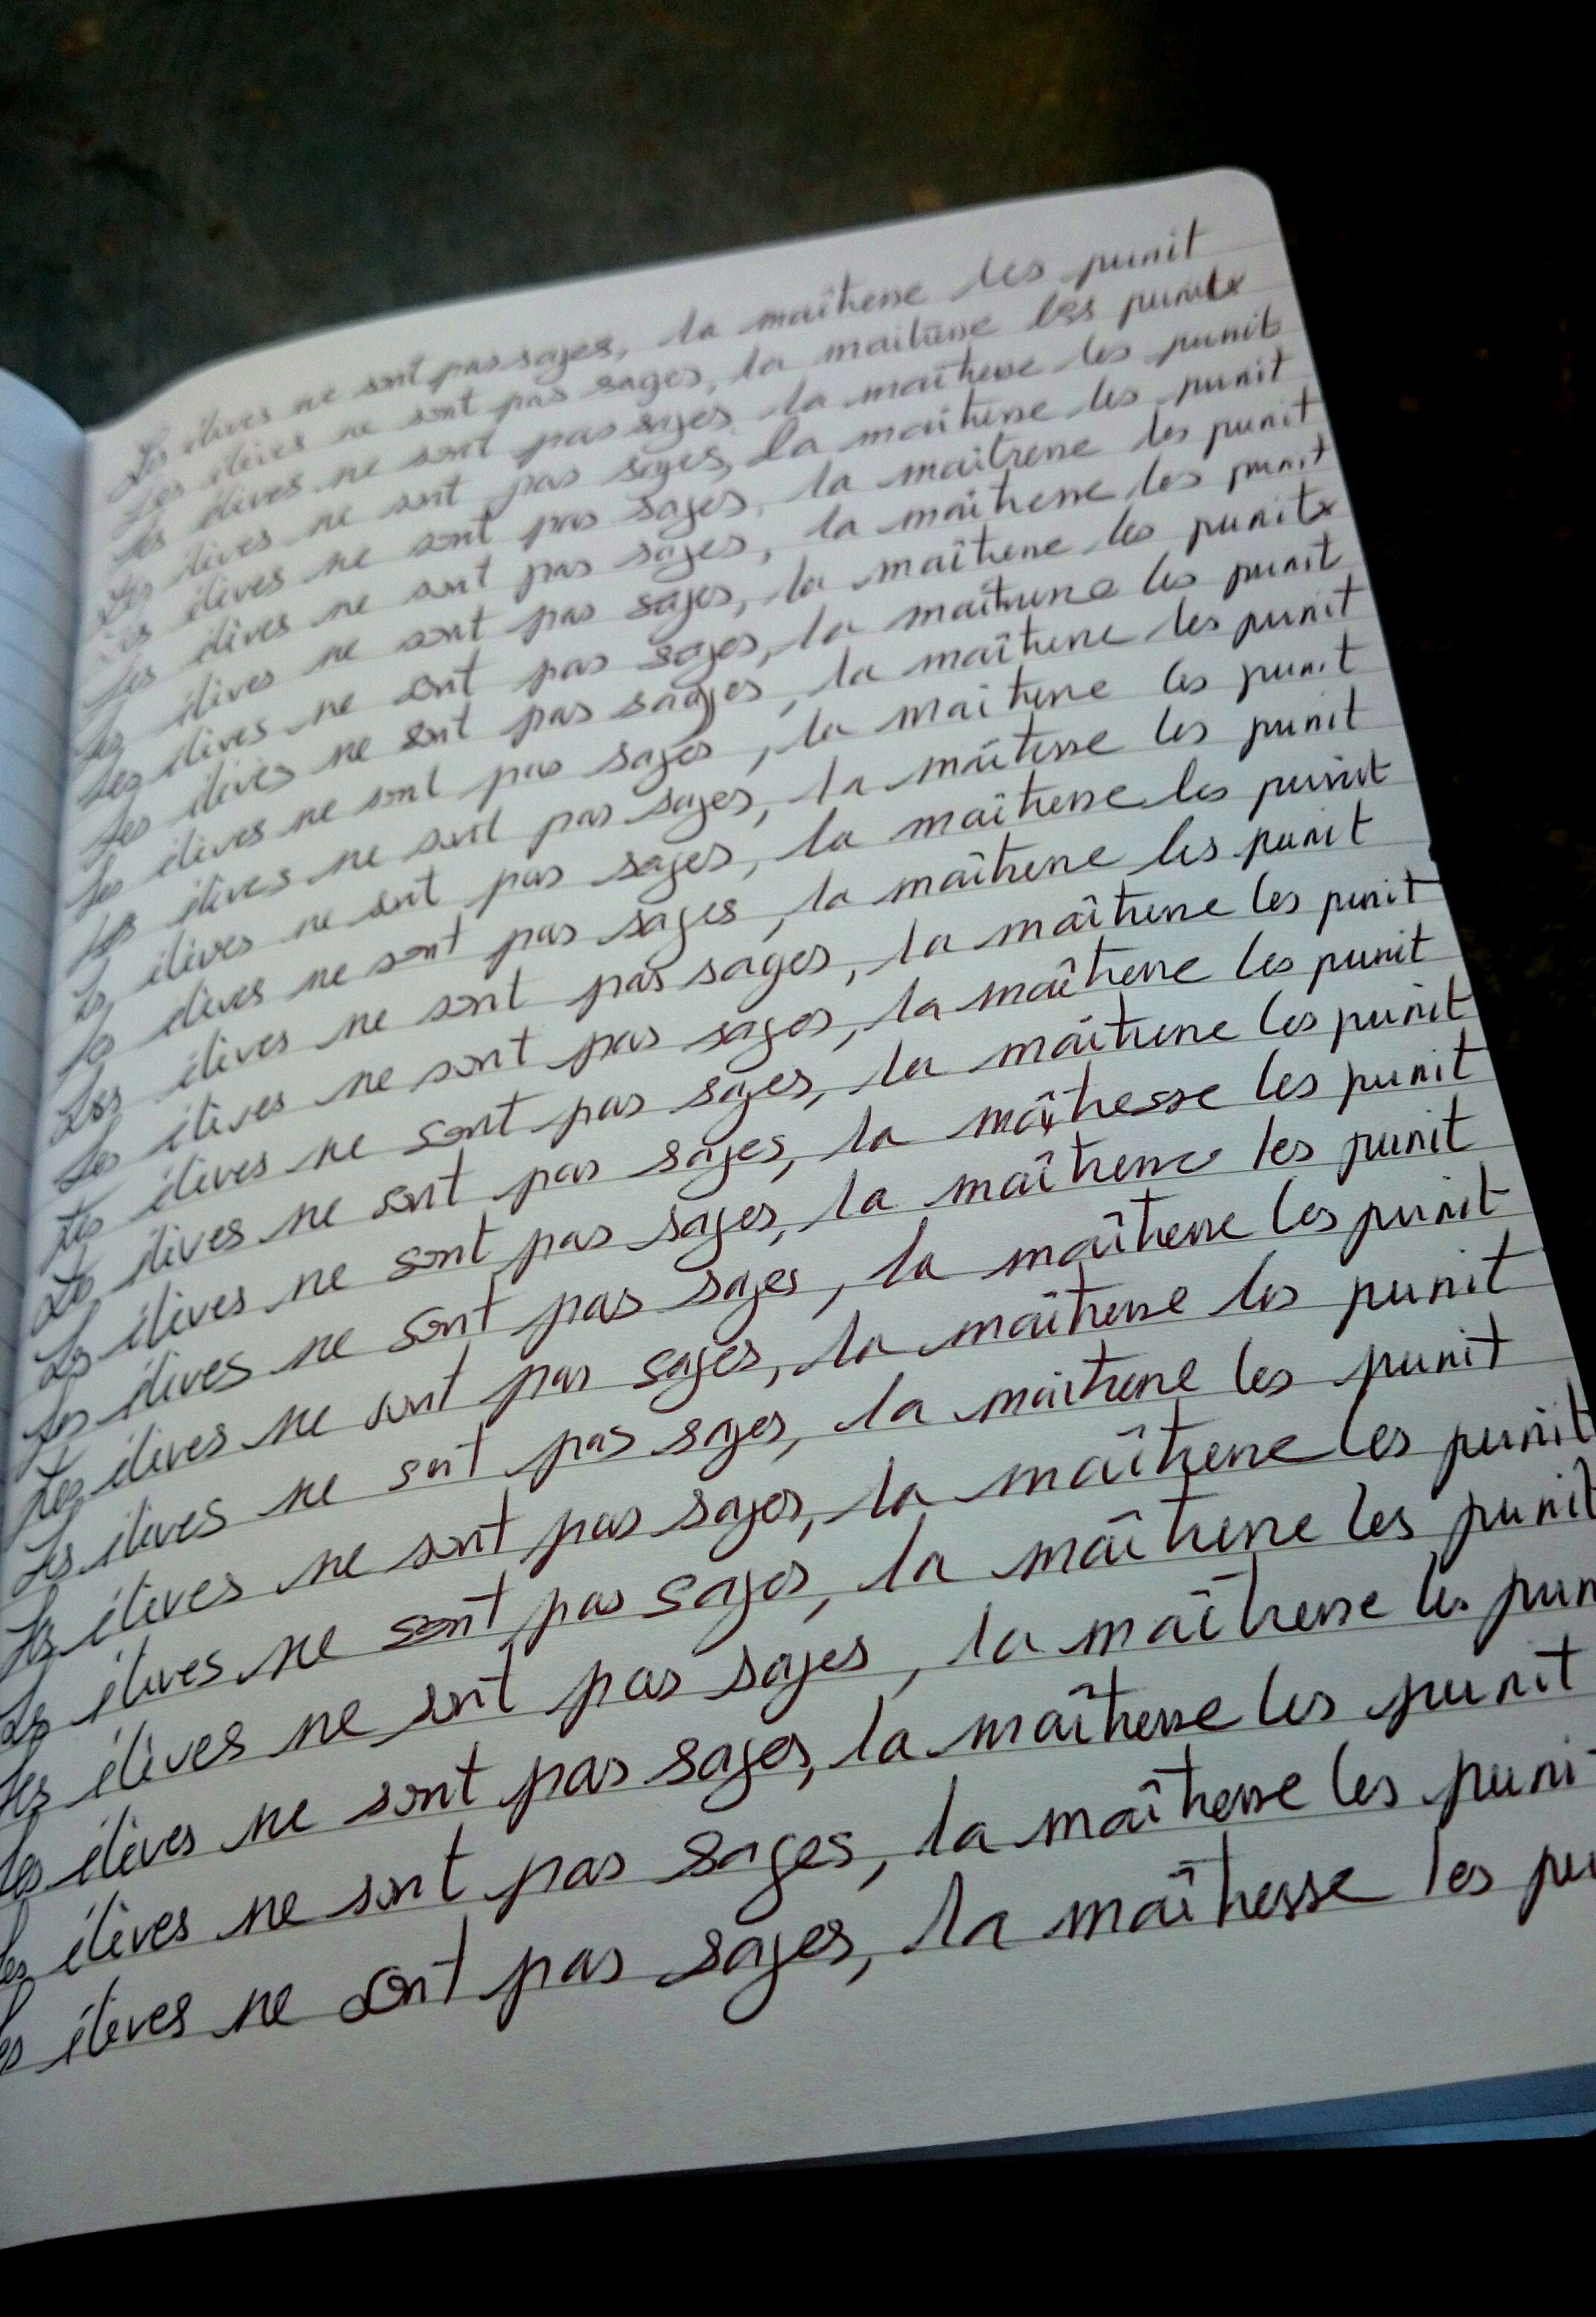 Les élèves ne sont pas sages, la maîtresse les punit
Les élèves ne sont pas sages, la maîtresse les punit
Les élèves ne sont pas sages, la maîtresse les punit
Les élèves ne sont pas sages, la maîtresse les punit
Les élèves ne sont pas sages, la maîtresse les punit
Les élèves ne sont pas sages, la maîtresse les punit
Les élèves ne sont pas sages, la maîtresse les punit
Les élèves ne sont pas sages, la maîtresse les punit
Les élèves ne sont pas sages, la maîtresse les punit
Les élèves ne sont pas sages, la maîtresse les punit
Les élèves ne sont pas sages, la maîtresse les punit
Les élèves ne sont pas sages, la maîtresse les punit
Les élèves ne sont pas sages, la maîtresse les punit
Les élèves ne sont pas sages, la maîtresse les punit
Les élèves ne sont pas sages, la maîtresse les punit
Les élèves ne sont pas sages, la maîtresse les punit
Les élèves ne sont pas sages, la maîtresse les punit
Les élèves ne sont pas sages, la maîtresse les punit
Les élèves ne sont pas sages, la maîtresse les punit
Les élèves ne sont pas sages, la maîtresse les punit
Les élèves ne sont pas sages, la maîtresse les punit
Les élèves ne sont pas sages, la maîtresse les punit
Les élèves ne sont pas sages, la maîtresse les punit
Les élèves ne sont pas sages, la maîtresse les pun
Les élèves ne sont pas sages, la maîtresse les punit
Les élèves ne sont pas sages, la maîtresse les puni
es élèves ne sont pas sages, la maîtresse les pu